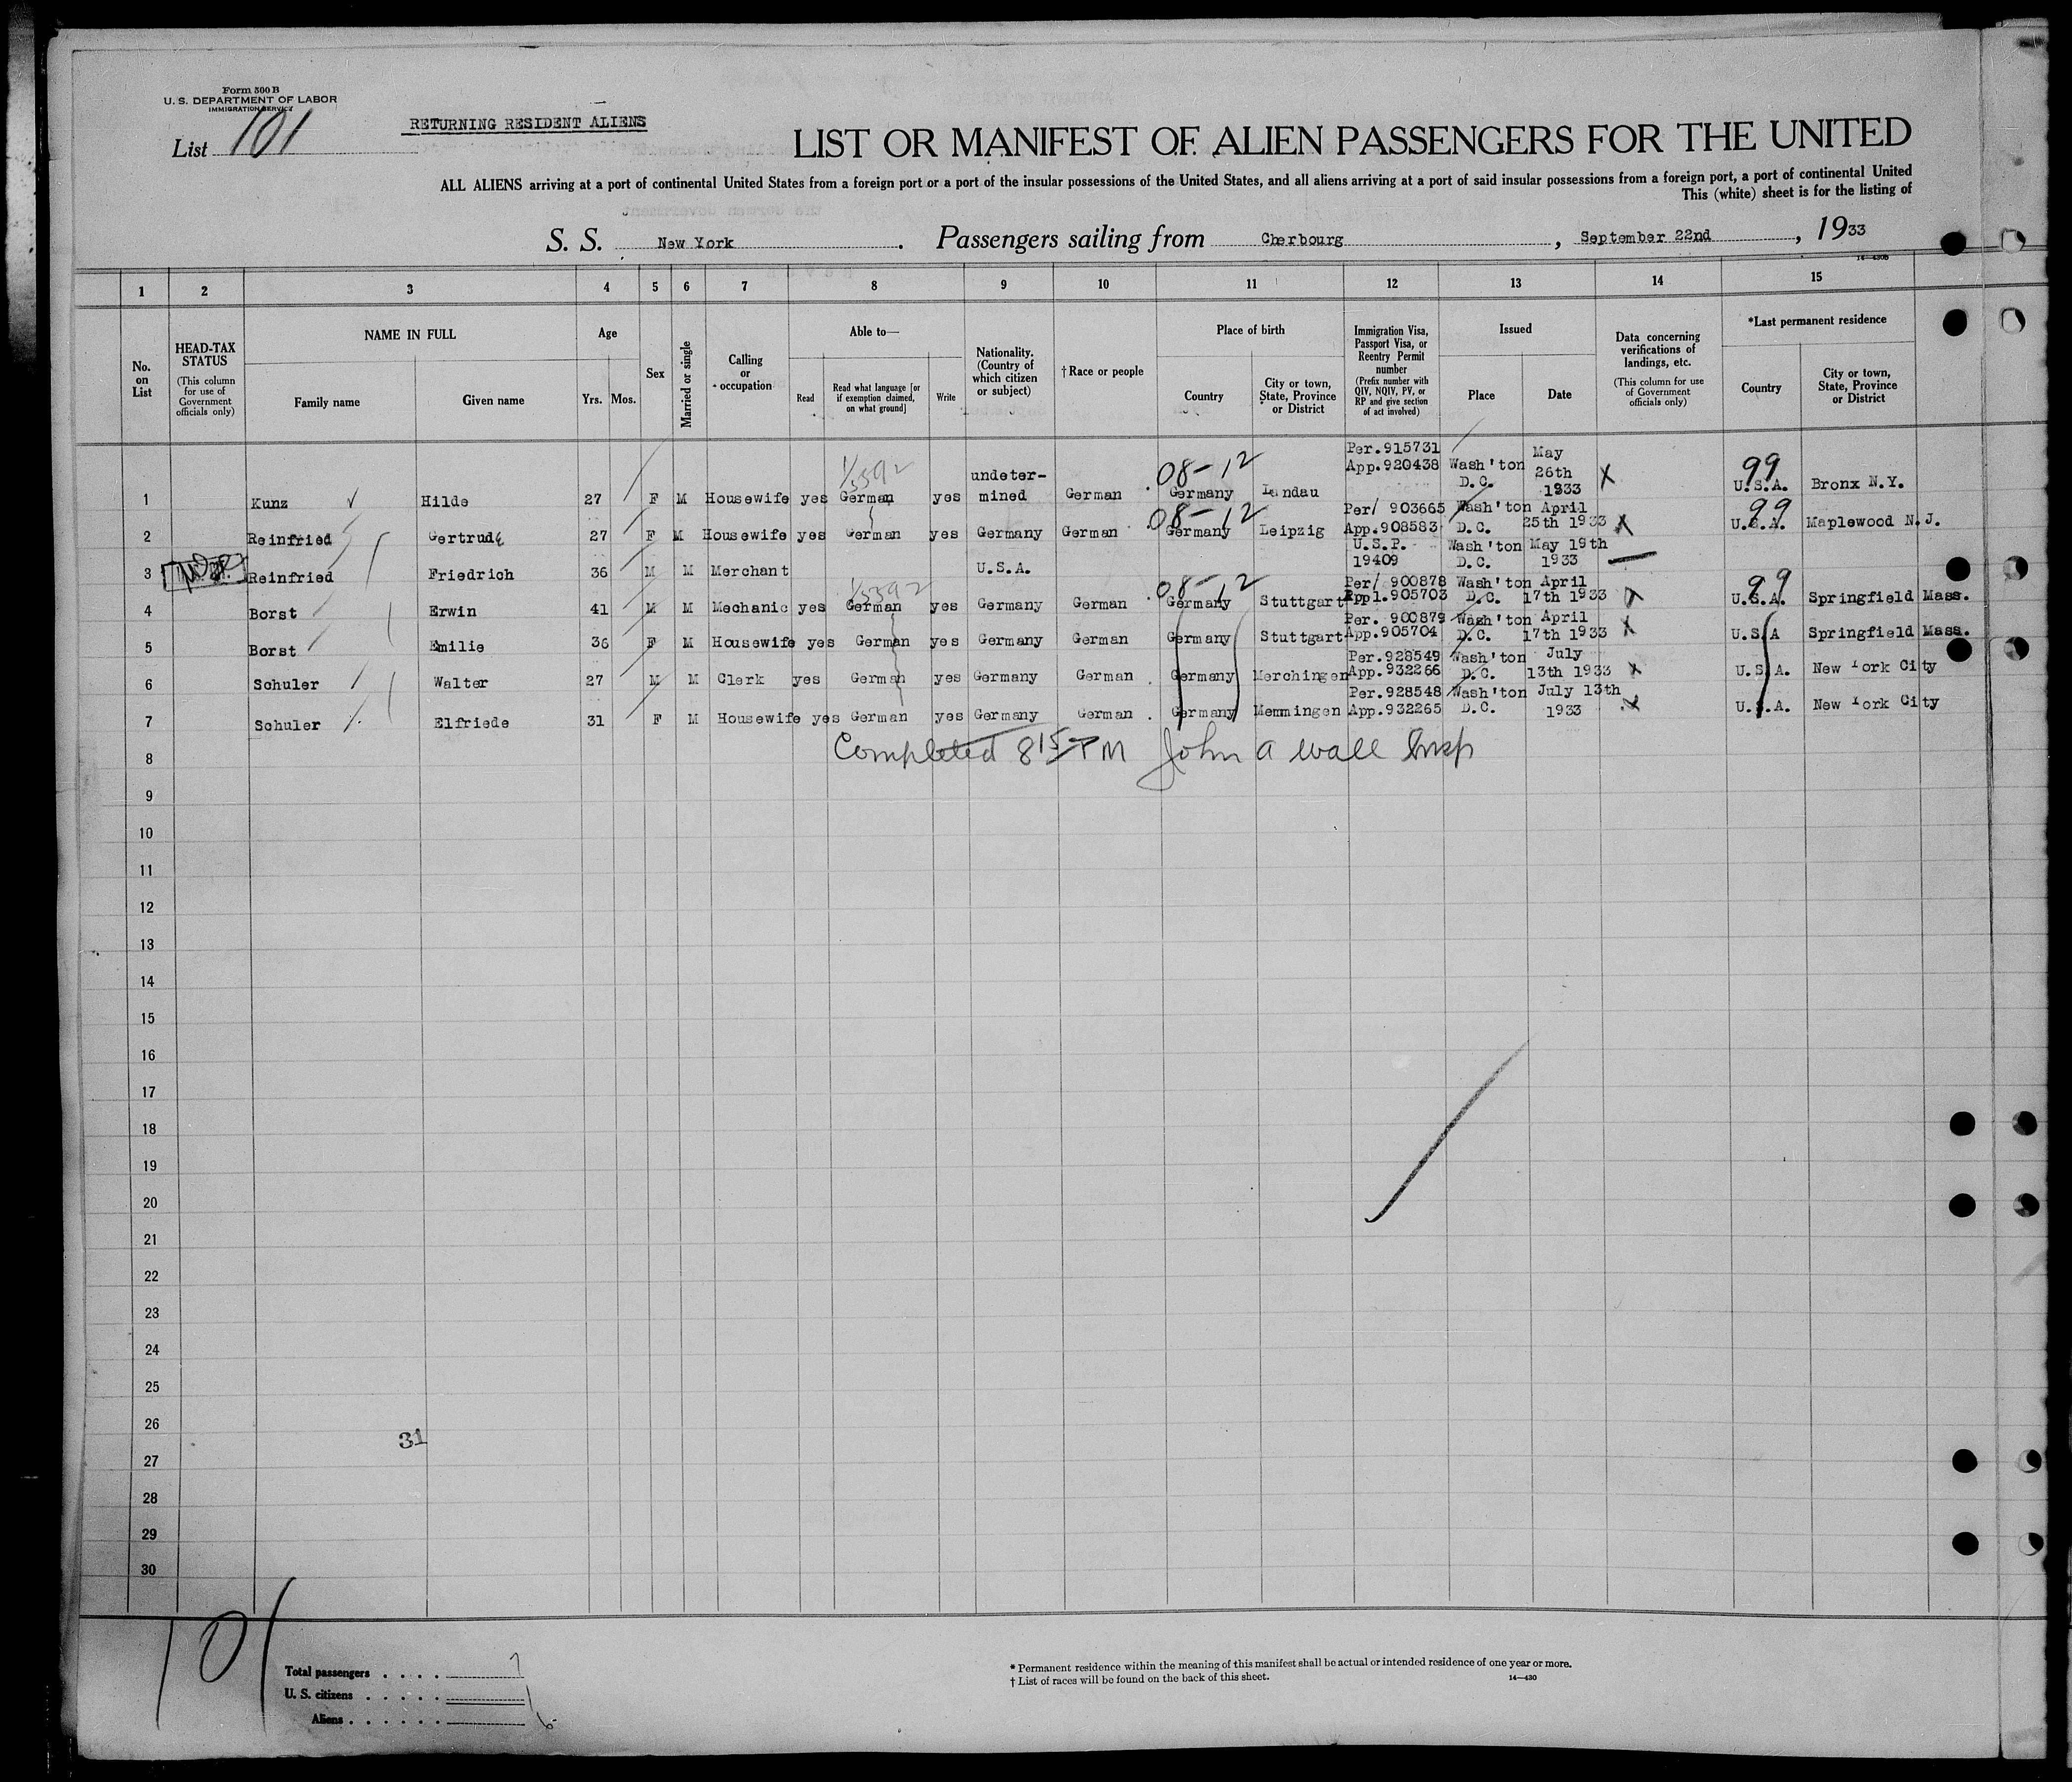 Form 500 B
U. S. DEPARTMENT OF LABOR
IMMIGRATION SERVICE
List 101
RETURNING RESIDENT ALIENS
LIST OR MANIFEST OF ALIEN PASSENGERS FOR THE UNITED
ALL ALIENS arriving at a port of continental United States from a foreign port or a port of the insular possessions of the United States, and all aliens arriving at a port of said insular possessions from a foreign port, a port of continental United
This (white) sheet is for the listing of
S. S. New York . Passengers sailing from Cherbourg , September 22nd , 1933
1 2 3 4 5 6 7 8 9 10 11 12 13 14 15
No. on List
HEAD-TAX STATUS (This column for use of Government officials only)
NAME IN FULL Family name Given name
Age Yrs. Mos.
Sex
Married or single
Calling or occupation
Able to— Read Read what language [or if exemption claimed, on what ground] Write
Nationality. (Country of which citizen or subject)
†Race or people
Place of birth Country City or town, State, Province or District
Immigration Visa, Passport Visa, or Reentry Permit number (Prefix number with QIV, NQIV, PV, or RP and give section of act involved)
Issued Place Date
Data concerning verifications of landings, etc. (This column for use of Government officials only)
*Last permanent residence Country City or town, State, Province or District
1 Kunz Hilde 27 F M Housewife yes German yes undeter-mined German 08-12 Germany Landau Per.915731 App.920438 Wash'ton D.C. May 26th 1933 X 99 U.S.A. Bronx N.Y.
2 Reinfried Gertrude 27 F M Housewife yes German yes Germany German 08-12 Germany Leipzig Per/ 903665 App.908583 Wash'ton D.C. April 25th 1933 X 99 U.S.A. Maplewood N.J.
3 Reinfried Friedrich 36 M M Merchant U.S.A. U.S.P. 19409 Wash'ton D.C. May 19th 1933
4 Borst Erwin 41 M M Mechanic yes German yes Germany German 08-12 Germany Stuttgart Per/ 900878 Appl.905703 Wash'ton D.C. April 17th 1933 X 99 U.S.A. Springfield Mass.
5 Borst Emilie 36 F M Housewife yes German yes Germany German Germany Stuttgart Per. 900879 App.905704 Wash'ton D.C. April 17th 1933 X U.S.A Springfield Mass.
6 Schuler Walter 27 M M Clerk yes German yes Germany German Germany Merchingen Per.928549 App.932266 Wash'ton D.C. July 13th 1933 X U.S.A. New York City
7 Schuler Elfriede 31 F M Housewife yes German yes Germany German Germany Memmingen Per.928548 App.932265 Wash'ton D.C. July 13th 1933 X U.S.A. New York City
8 Completed 8 15 PM John A Wall Insp
9
10
11
12
13
14
15
16
17
18
19
20
21
22
23
24
25
26
31
27
28
29
30
101
Total passengers . . . . 7
U. S. citizens . . . . . 1
Aliens . . . . . . 6
* Permanent residence within the meaning of this manifest shall be actual or intended residence of one year or more.
† List of races will be found on the back of this sheet.
14—430